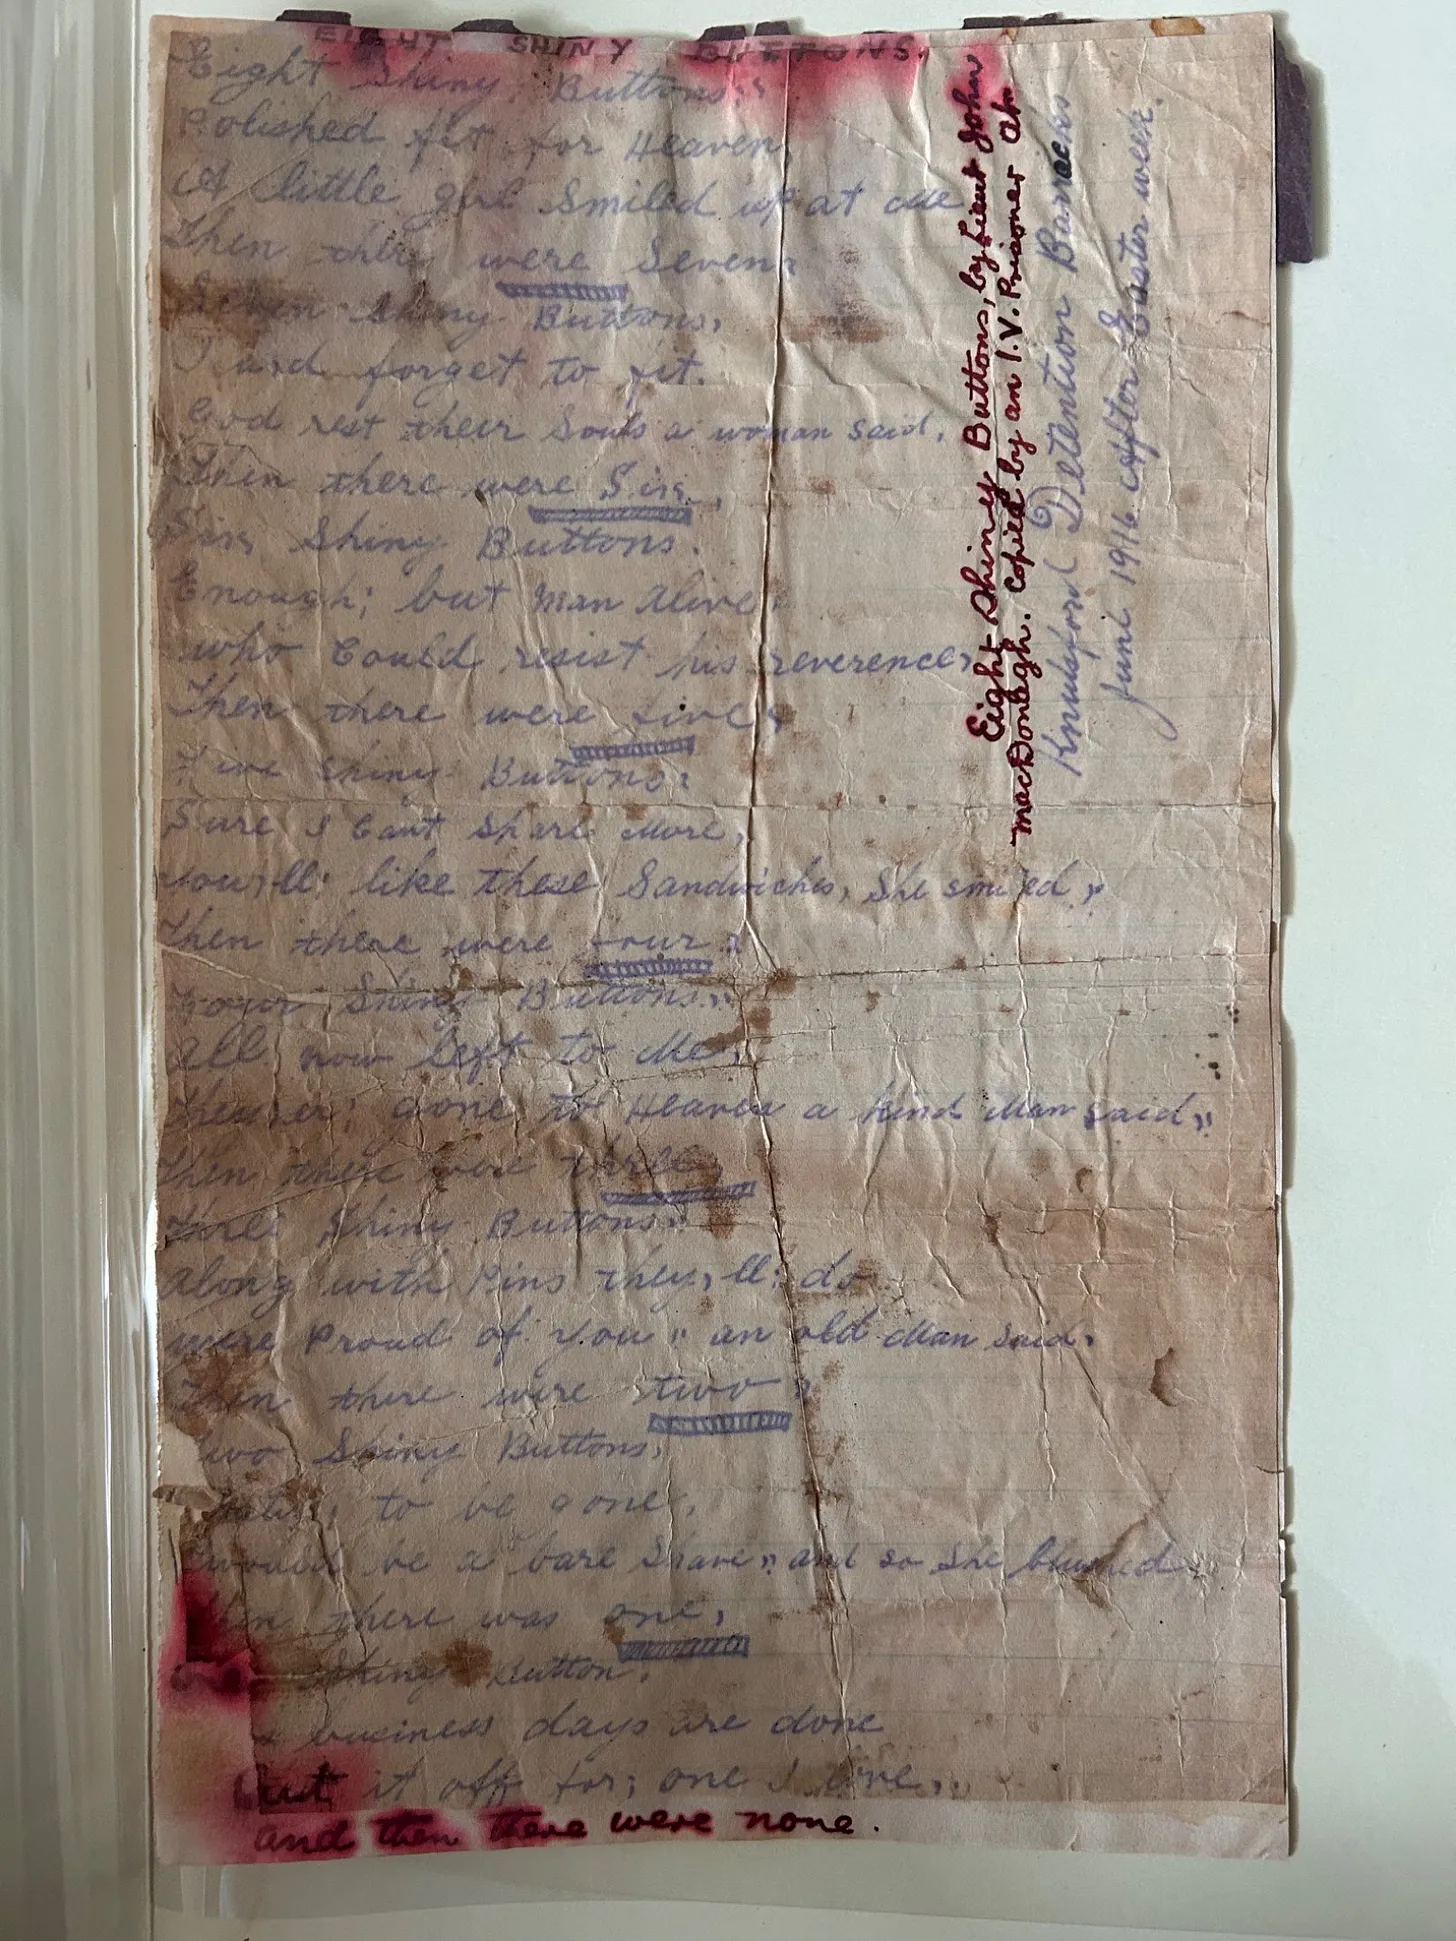 EIGHT SHINY BUTTONS.
Eight Shiny Buttons;
Polished fit for Heaven,
A little girl Smiled up at me
Then there were Seven;
Seven Shiny Buttons,
I and forget to fit.
God rest their Souls a woman said,
Then there were Six,
Six Shiny Buttons.
Enough; but Man Alive,
who Could resist his reverence,
Then there were five;
Five Shiny Buttons;
Sure I Cant Share More,
you,ll; like these Sandwiches, She smiled,,
Then there were four;
Four Shiny Buttons,,
all now left to Me,
gone to Heaven a kind Man said,,
Then there were three,
Three Shiny Buttons,,
Along with Pins they,ll; do
were Proud of you,, an old Man Said,
Then there were two;
two Shiny Buttons,
to be gone,
would be a bare Shave,, and so She blushed
Then there was one,
one Shiny Button,
business days are done
Cut it off for; one I love,,,
and then there were none.
Eight Shiny Buttons, by Lieut John
MacDonlagh. Copied by an I.V. Prisoner at
Knutsford Detention Barracks
June 1916 after Easter week.